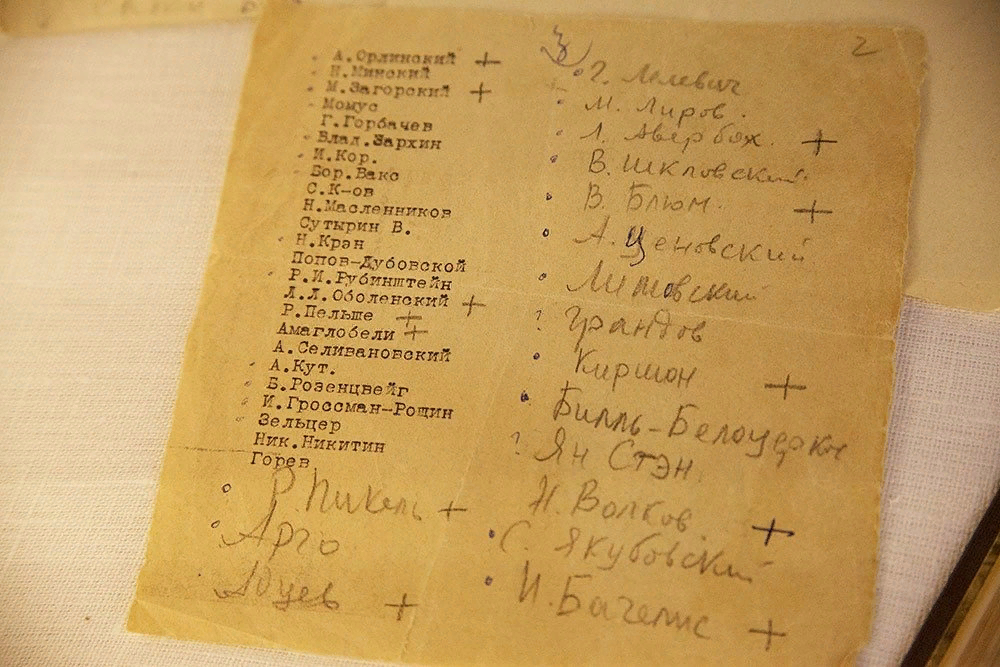 А.Орлинский +
Н.Минский
М.Загорский +
Момус
Г.Горбачев
Влад.Зархин
И.Кор.
Бор.Вакс
С.К-ов
Н.Масленников
Сутырин В.
Н.Крэн
Попов-Дубовской
Р.И.Рубинштейн
Л.Л.Оболенский +
Р.Пельше +
Амаглобели +
А.Селивановский
А.Кут.
Б.Розенцвейг
И.Гроссман-Рощин
Зельцер
Ник.Никитин
Горев
Р. Пикель +
Арго
2
Г. Лелевич
М. Лиров.
Л. Авербах. +
В. Шкловский
В. Блюм. +
А. Ценовский
Литовский
? Грандов
Киршон +
Билль-Белоцерков
? Ян Стэн.
Н. Волков +
С. Якубовский
И. Бачелис +